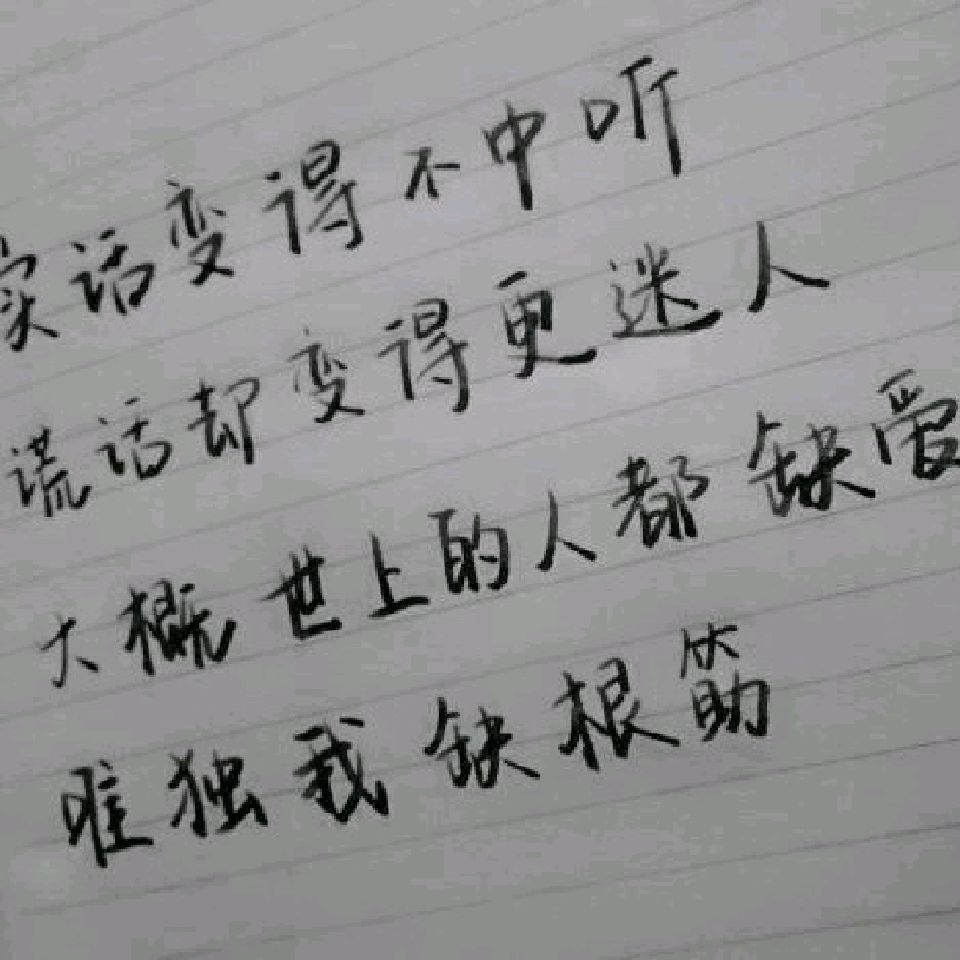 实话变得不中听
谎话却变得更迷人
大概世上的人都缺爱
唯独我缺根筋